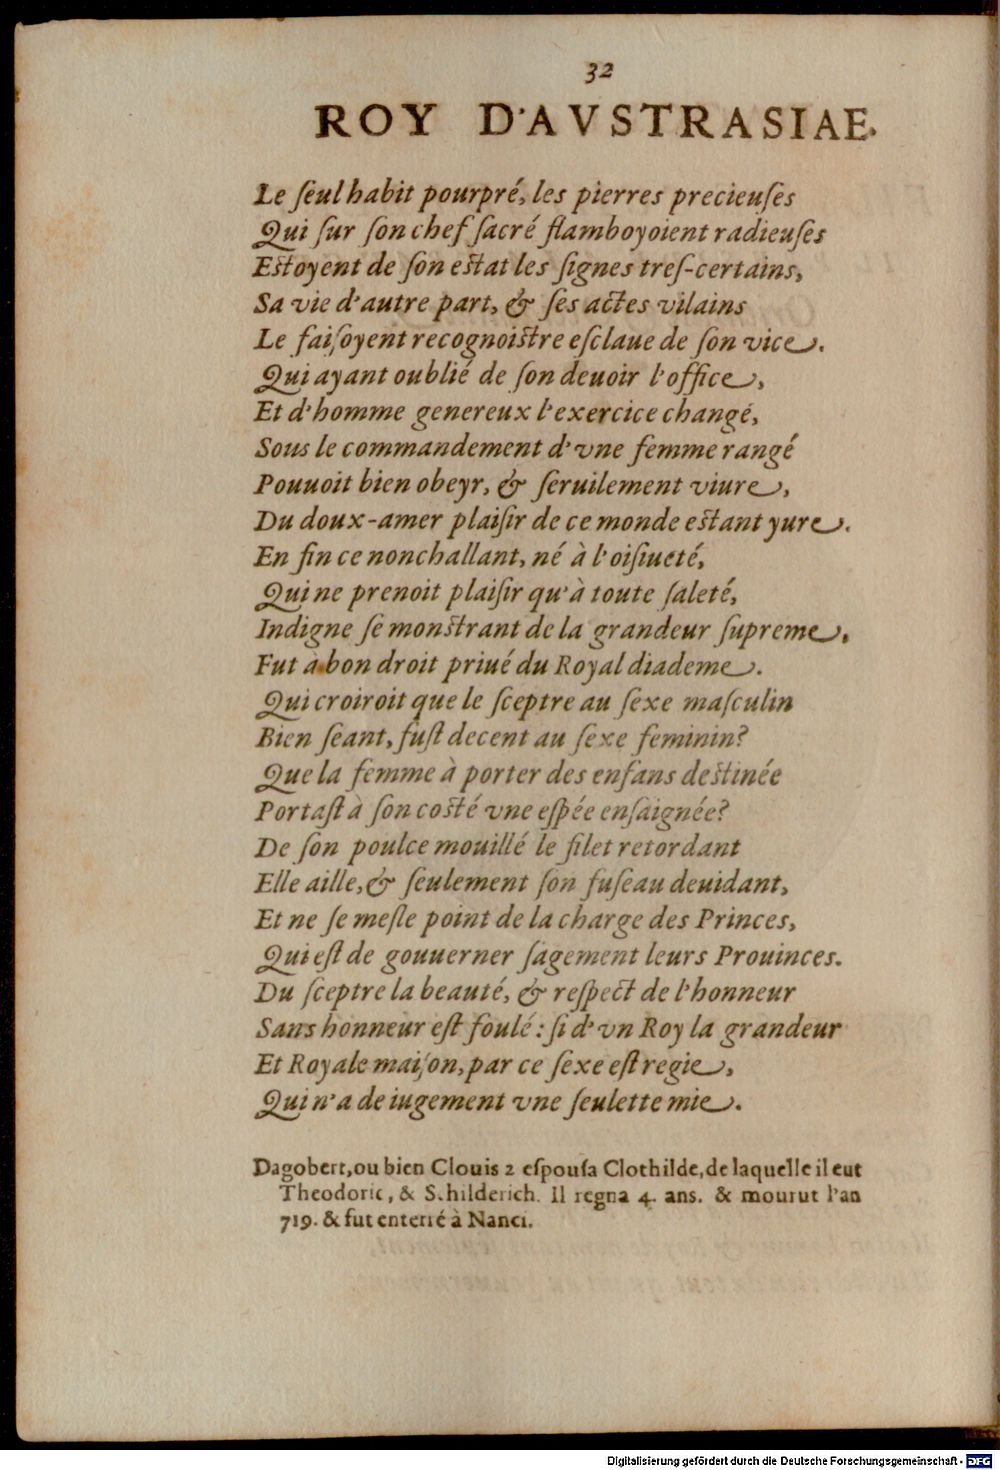 32
ROY D'AVSTRASIAE.
Le ſeul habit pourpré, les pierres precieuſes
Qui ſur ſon chef ſacré flamboyoient radieuſes
Eſtoyent de ſon eſtat les ſignes treſ-certains,
Sa vie d'autre part, & ſes actes vilains
Le faiſoyent recognoiſtre eſclaue de ſon vice.
Qui ayant oublié de ſon deuoir l'office,
Et d'homme genereux l'exercice changé,
Sous le commandement d'vne femme rangé
Pouuoit bien obeyr, & ſeruilement viure,
Du doux-amer plaiſir de ce monde eſtant yure.
En fin ce nonchallant, né à l'oiſiueté,
Qui ne prenoit plaiſir qu'à toute ſaleté,
Indigne ſe monſtrant de la grandeur ſupreme,
Fut à bon droit priué du Royal diademe.
Qui croiroit que le ſceptre au ſexe maſculin
Bien ſeant, fuſt decent au ſexe feminin?
Que la femme à porter des enfans deſtinée
Portaſt à ſon coſté vne eſpée enſaignée?
De ſon poulce mouillé le filet retordant
Elle aille, & ſeulement ſon fuſeau deuidant,
Et ne ſe meſle point de la charge des Princes,
Qui eſt de gouuerner ſagement leurs Prouinces.
Du ſceptre la beauté, & reſpect de l'honneur
Sans honneur eſt foulé : ſi d'vn Roy la grandeur
Et Royale maiſon, par ce ſexe eſt regie,
Qui n'a de iugement vne ſeulette mie.
Dagobert, ou bien Clouis 2 eſpouſa Clothilde, de laquelle il eut
Theodoric, & Schilderich. Il regna 4. ans. & mourut l'an
719. & fut enterré à Nanci.
Digitalisierung gefördert durch die Deutsche Forschungsgemeinschaft - DFG